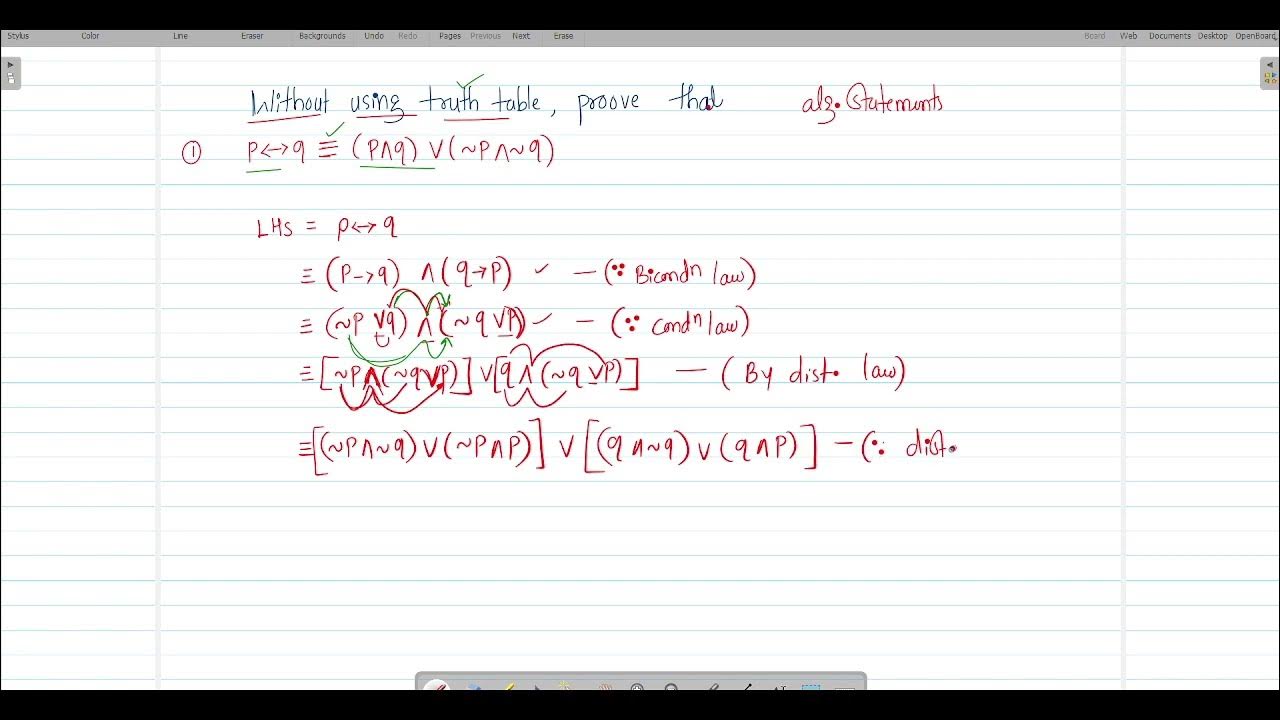 Stylus Color Line Eraser Backgrounds Undo Redo Pages Previous Next Erase Board Web Documents Desktop OpenBoard
Without using truth table, proove that alg. Statements
① p↔q ≡ (p∧q) ∨ (~p∧~q)
LHS = p↔q
≡ (p→q) ∧ (q→p) ✓ — (∵ Bicondⁿ law)
≡ (~p ∨q) ∧ (~q ∨p) ✓ — (∵ Condⁿ law)
≡ [~p∧(~q∨p)] ∨ [q∧(~q∨p)] — (By dist. law)
≡ [(~p∧~q) ∨ (~p∧p)] ∨ [(q∧~q) ∨ (q∧p)] — (∵ dist.